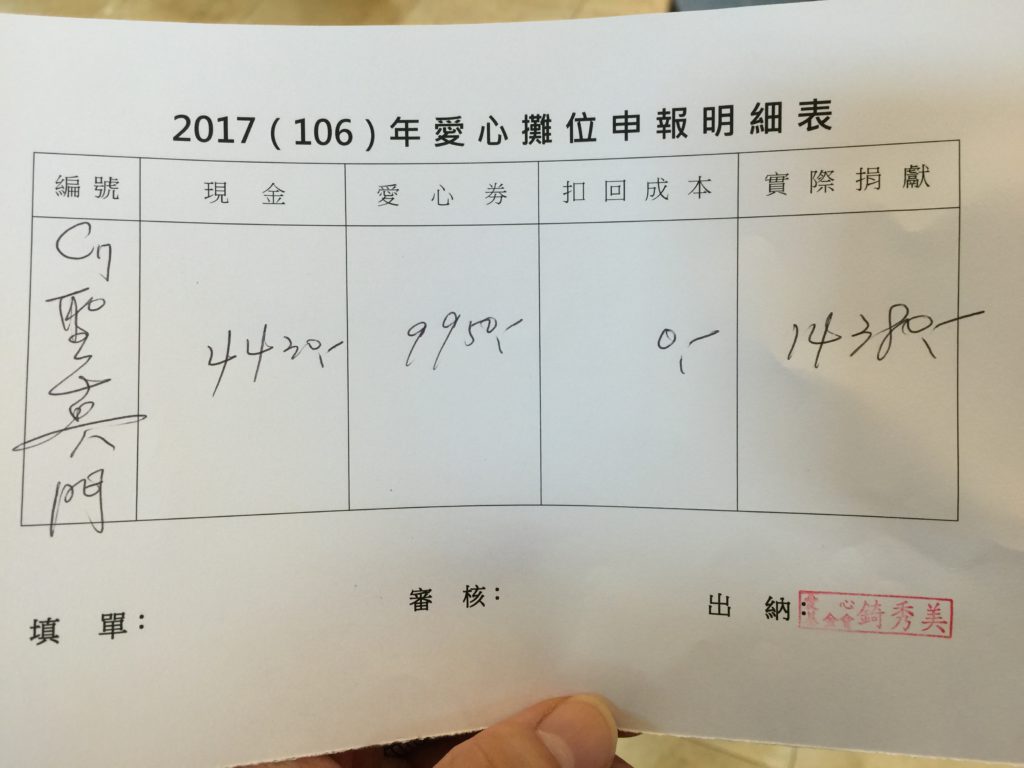 2017(106)年愛心攤位申報明細表
編號 現金 愛心券 扣回成本 實際捐獻
C7 聖真門 4430,- 9950,- 0,- 14380,-
填單： 審核： 出納：
錡秀美